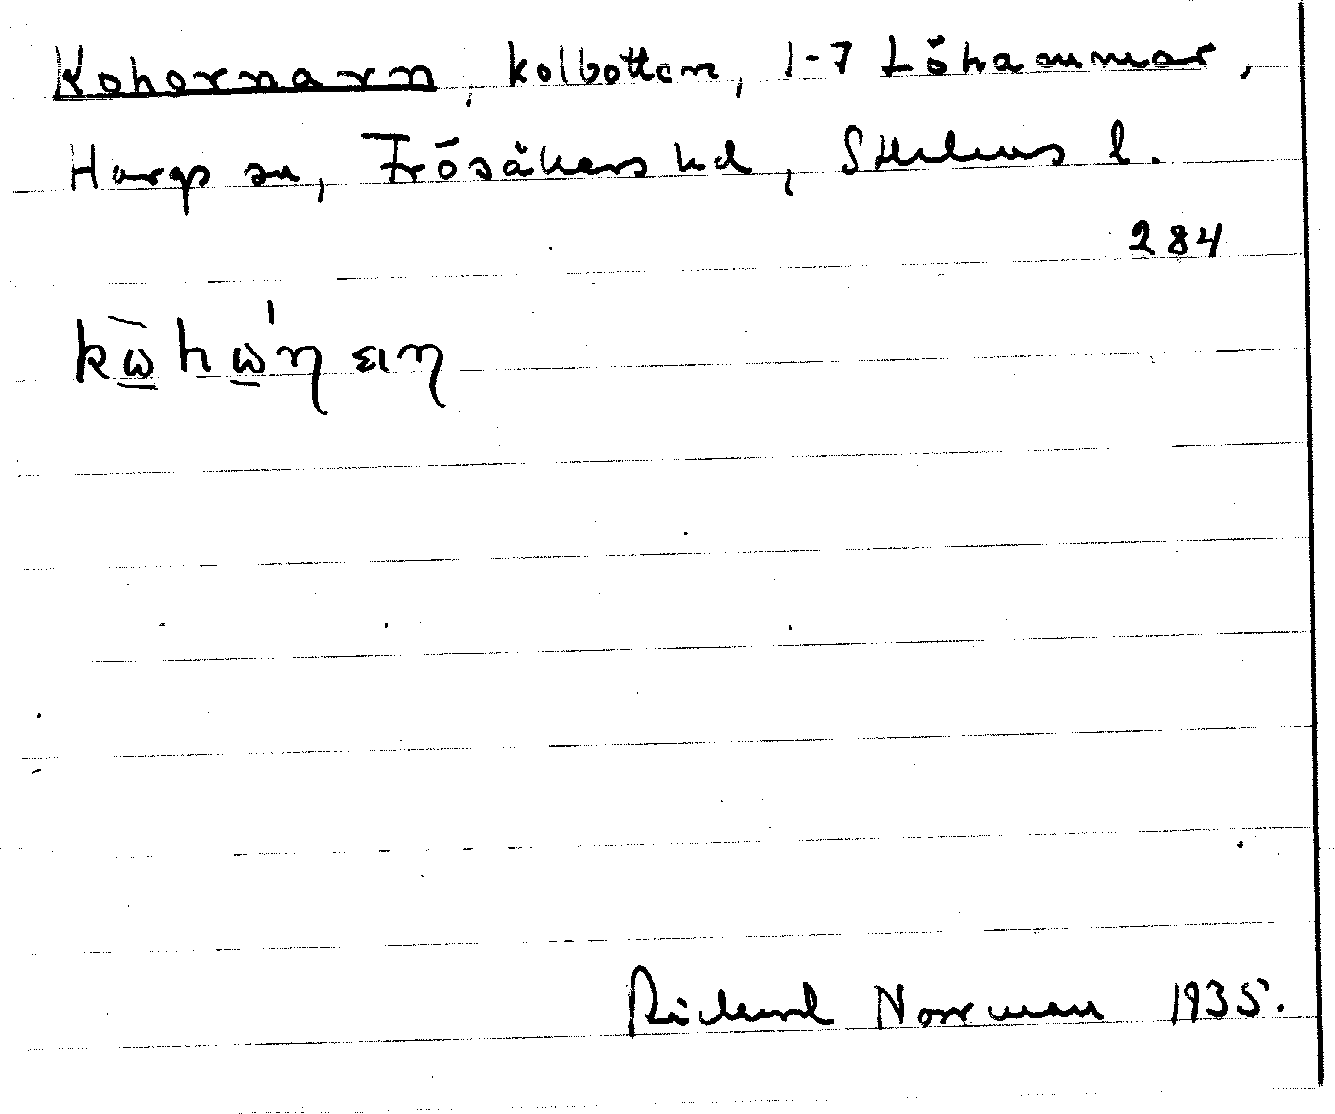 Kohornarn, kolbotten, 1-7 Löhammar,
Hargs sn, Frösåkers hd, Sthlms l.
284
Rickard Norrman 1935.